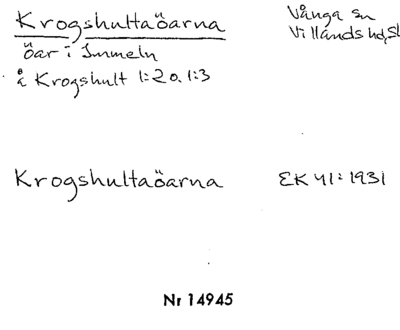 Krogshultaöarna
Vånga sn
Villands hd, Sk
öar i Immeln
å Krogshult 1:2 o. 1:3
Krogshultaöarna
EK 41: 1931
Nr 14945